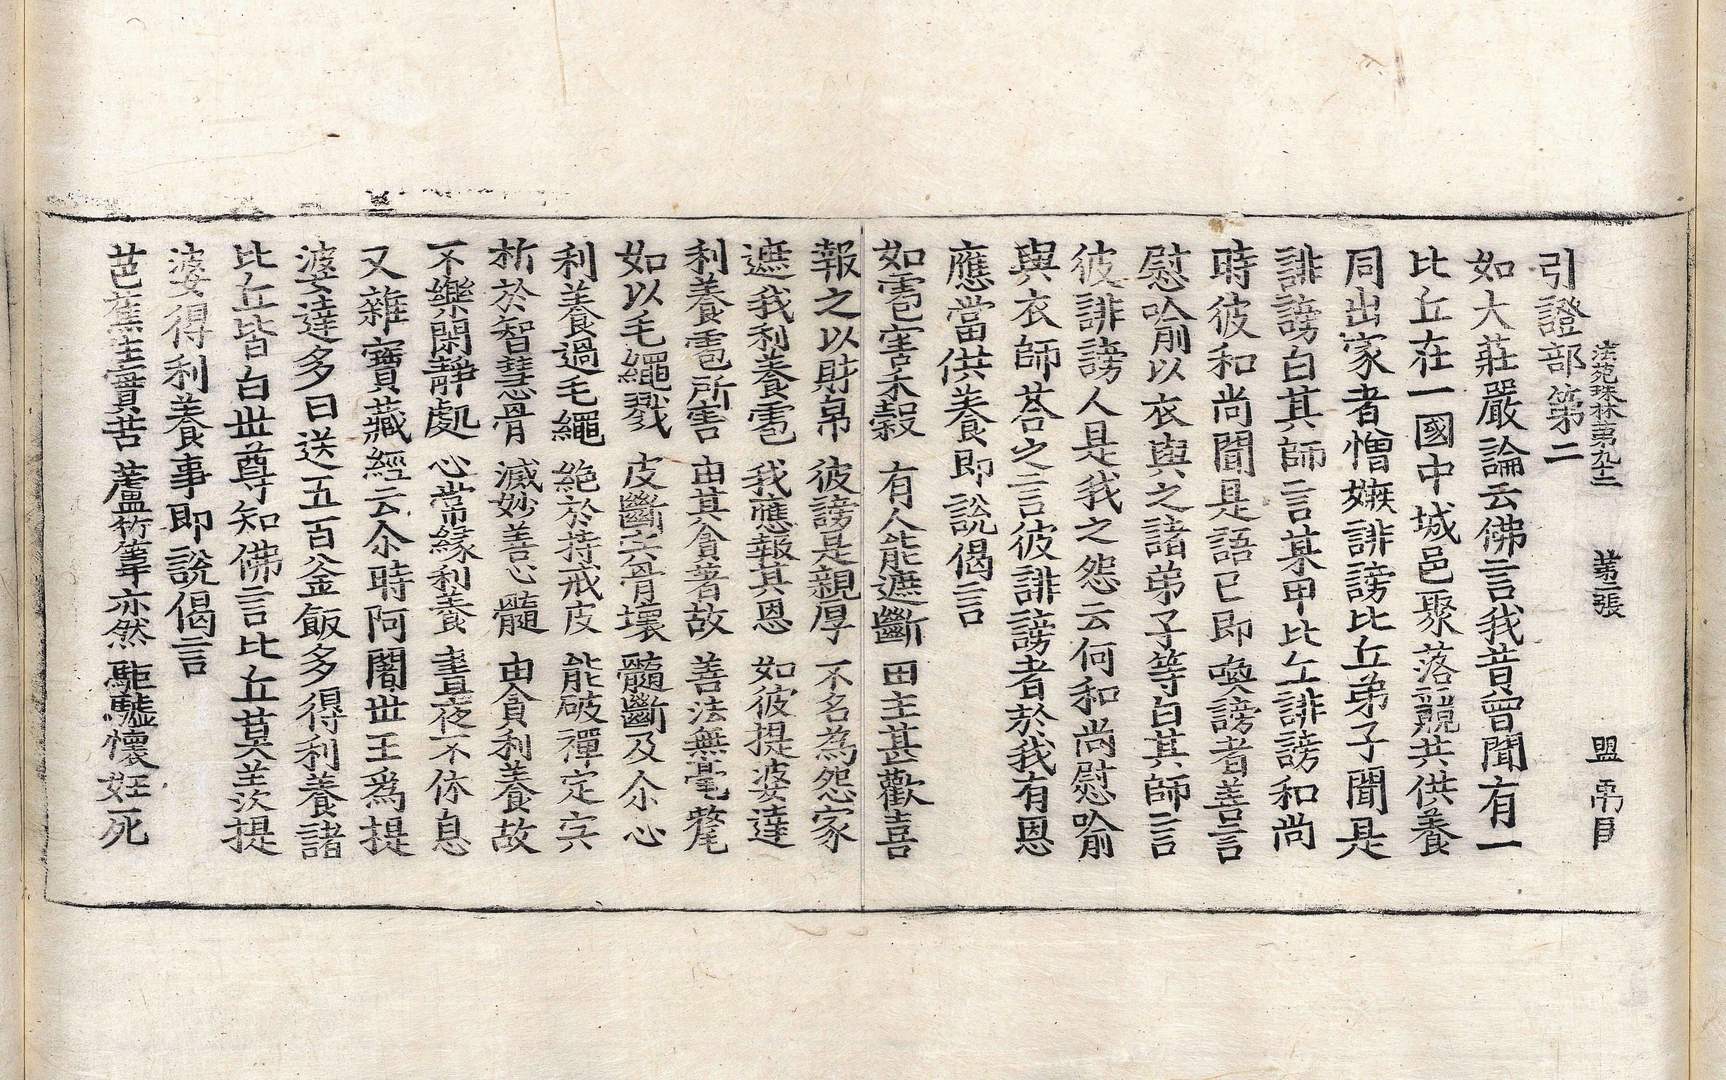 法苑珠林第九十二　第三張　盟　禹目
引證部第二
如大莊嚴論云佛言我昔曾聞有一
比丘在一國中城邑聚落競共供養
同出家者憎嫉誹謗比丘弟子聞是
誹謗白其師言某甲比丘誹謗和尚
時彼和尚聞是語已即喚謗者善言
慰喻以衣與之諸弟子等白其師言
彼誹謗人是我之怨云何和尚慰喻
與衣師荅之言彼誹謗者於我有恩
應當供養即說偈言
如雹害禾穀　有人能遮斷　田主甚歡喜
報之以財帛　彼謗是親厚　不名為怨家
遮我利養雹　我應報其恩　如彼提婆達
利養雹所害　由其貪著故　善法無毫氂
如以毛繩戮　皮斷肉骨壞　髓斷及尒心
利養過毛繩　絕於持戒皮　能破禪定肉
析於智慧骨　滅妙善心髓　由貪利養故
不樂閑靜處　心常緣利養　晝夜不休息
又雜寶藏經云尒時阿闍世王爲提
婆達多日送五百釜飯多得利養諸
比丘皆白世尊知佛言比丘莫羨提
婆得利養事即說偈言
芭蕉生實苦　蘆竹葦亦然　駏驉懷妊死